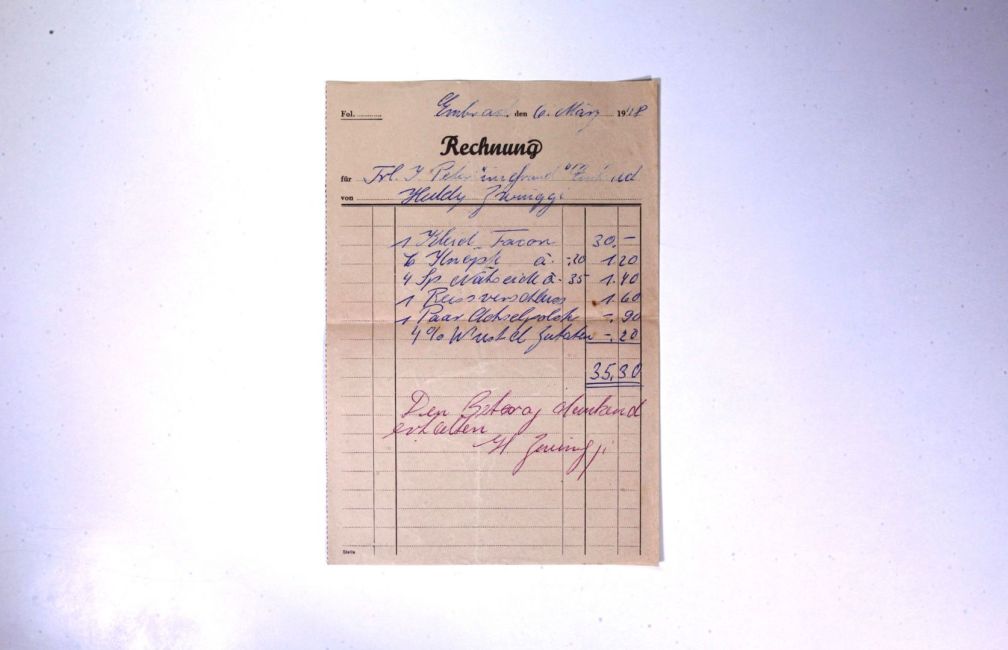 Fol. ............
Embrach, den 6. März 1948
Rechnung
für Frl. J. Peter
von Heidy Zwinggi
1 Kleid Facon 30.–
6 Knöpfe à -.20 1.20
4 Sp. Nähseide à -.35 1.40
1 Reissverschluss 1.60
1 Paar Achselpolster -.90
4% Wust. d. Zutaten -.20
35,30
Den Betrag dankend
erhalten
H. Zwinggi
Stella